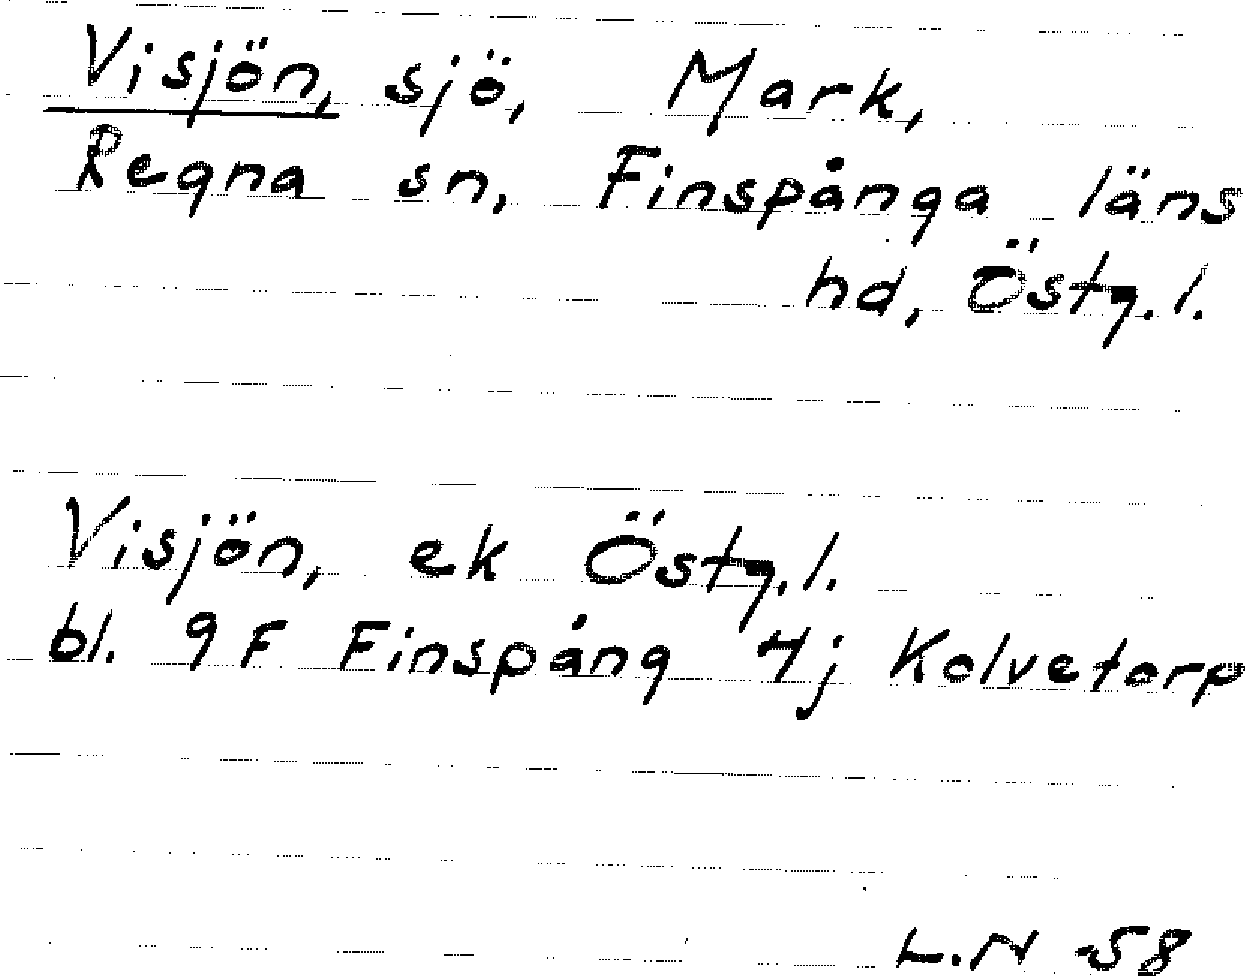 Visjön, sjö, Mark,
Regna sn, Finspånga läns
hd, Östg.l.
Visjön, ek Östg.l.
bl. 9F Finspång 4j Kolvetorp
L.N -58